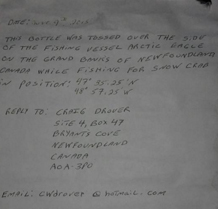 DATE:
THIS BOTTLE WAS TOSSED OVER THE SIDE
OF THE FISHING VESSEL ARCTIC EAGLE
ON THE GRAND BANKS OF NEWFOUNDLAND
CANADA WHILE FISHING FOR SNOW CRAB
IN POSITION: 47° 35.25' N
48° 57.25' W
REPLY TO: CRAIG DROVER
SITE 4, BOX 47
BRYANTS COVE
NEWFOUNDLAND
CANADA
A0A-3P0
EMAIL: CWDROVER @ HOTMAIL. COM